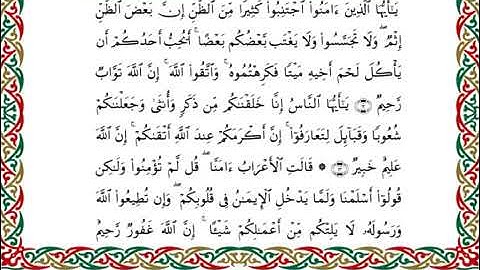 يَـٰٓأَيُّهَا ٱلَّذِينَ ءَامَنُوا۟ ٱجْتَنِبُوا۟ كَثِيرًا مِّنَ ٱلظَّنِّ إِنَّ بَعْضَ ٱلظَّنِّ
إِثْمٌ ۖ وَلَا تَجَسَّسُوا۟ وَلَا يَغْتَب بَّعْضُكُم بَعْضًا ۚ أَيُحِبُّ أَحَدُكُمْ أَن
يَأْكُلَ لَحْمَ أَخِيهِ مَيْتًا فَكَرِهْتُمُوهُ ۚ وَٱتَّقُوا۟ ٱللَّهَ ۚ إِنَّ ٱللَّهَ تَوَّابٌ
رَّحِيمٌ ۝١٢ يَـٰٓأَيُّهَا ٱلنَّاسُ إِنَّا خَلَقْنَـٰكُم مِّن ذَكَرٍ وَأُنثَىٰ وَجَعَلْنَـٰكُمْ
شُعُوبًا وَقَبَآئِلَ لِتَعَارَفُوٓا۟ ۚ إِنَّ أَكْرَمَكُمْ عِندَ ٱللَّهِ أَتْقَىٰكُمْ ۚ إِنَّ ٱللَّهَ
عَلِيمٌ خَبِيرٌ ۝١٣ ۞ قَالَتِ ٱلْأَعْرَابُ ءَامَنَّا ۖ قُل لَّمْ تُؤْمِنُوا۟ وَلَـٰكِن
قُولُوٓا۟ أَسْلَمْنَا وَلَمَّا يَدْخُلِ ٱلْإِيمَـٰنُ فِى قُلُوبِكُمْ ۖ وَإِن تُطِيعُوا۟ ٱللَّهَ
وَرَسُولَهُۥ لَا يَلِتْكُم مِّنْ أَعْمَـٰلِكُمْ شَيْـًٔا ۚ إِنَّ ٱللَّهَ غَفُورٌ رَّحِيمٌ